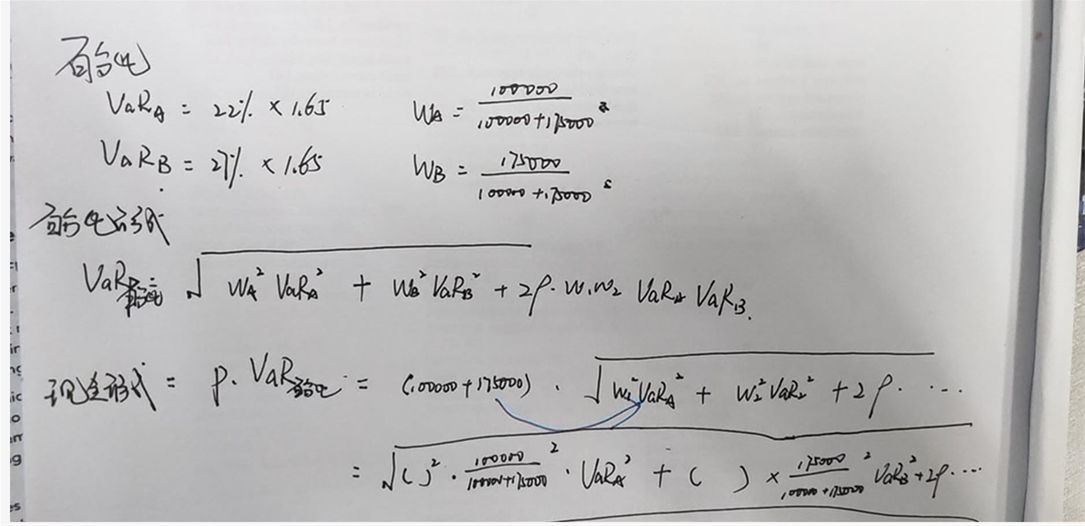 百分比
VaR_A = 22% × 1.65 W_A = 100000 / (100000+175000)
VaR_B = 27% × 1.65 W_B = 175000 / (100000+175000)
百分比形式
VaR百分比 √(W_A² VaR_A² + W_B² VaR_B² + 2ρ·W₁W₂ VaR_A VaR_B.
现金形式 = P. VaR百分比 = (100000+175000) · √(W₁² VaR_A² + W₂² VaR₂² + 2ρ · ····
= √( )² · (100000 / (100000+175000))² · VaR_A² + ( ) × (175000 / (100000+175000))² VaR_B² + 2ρ ····